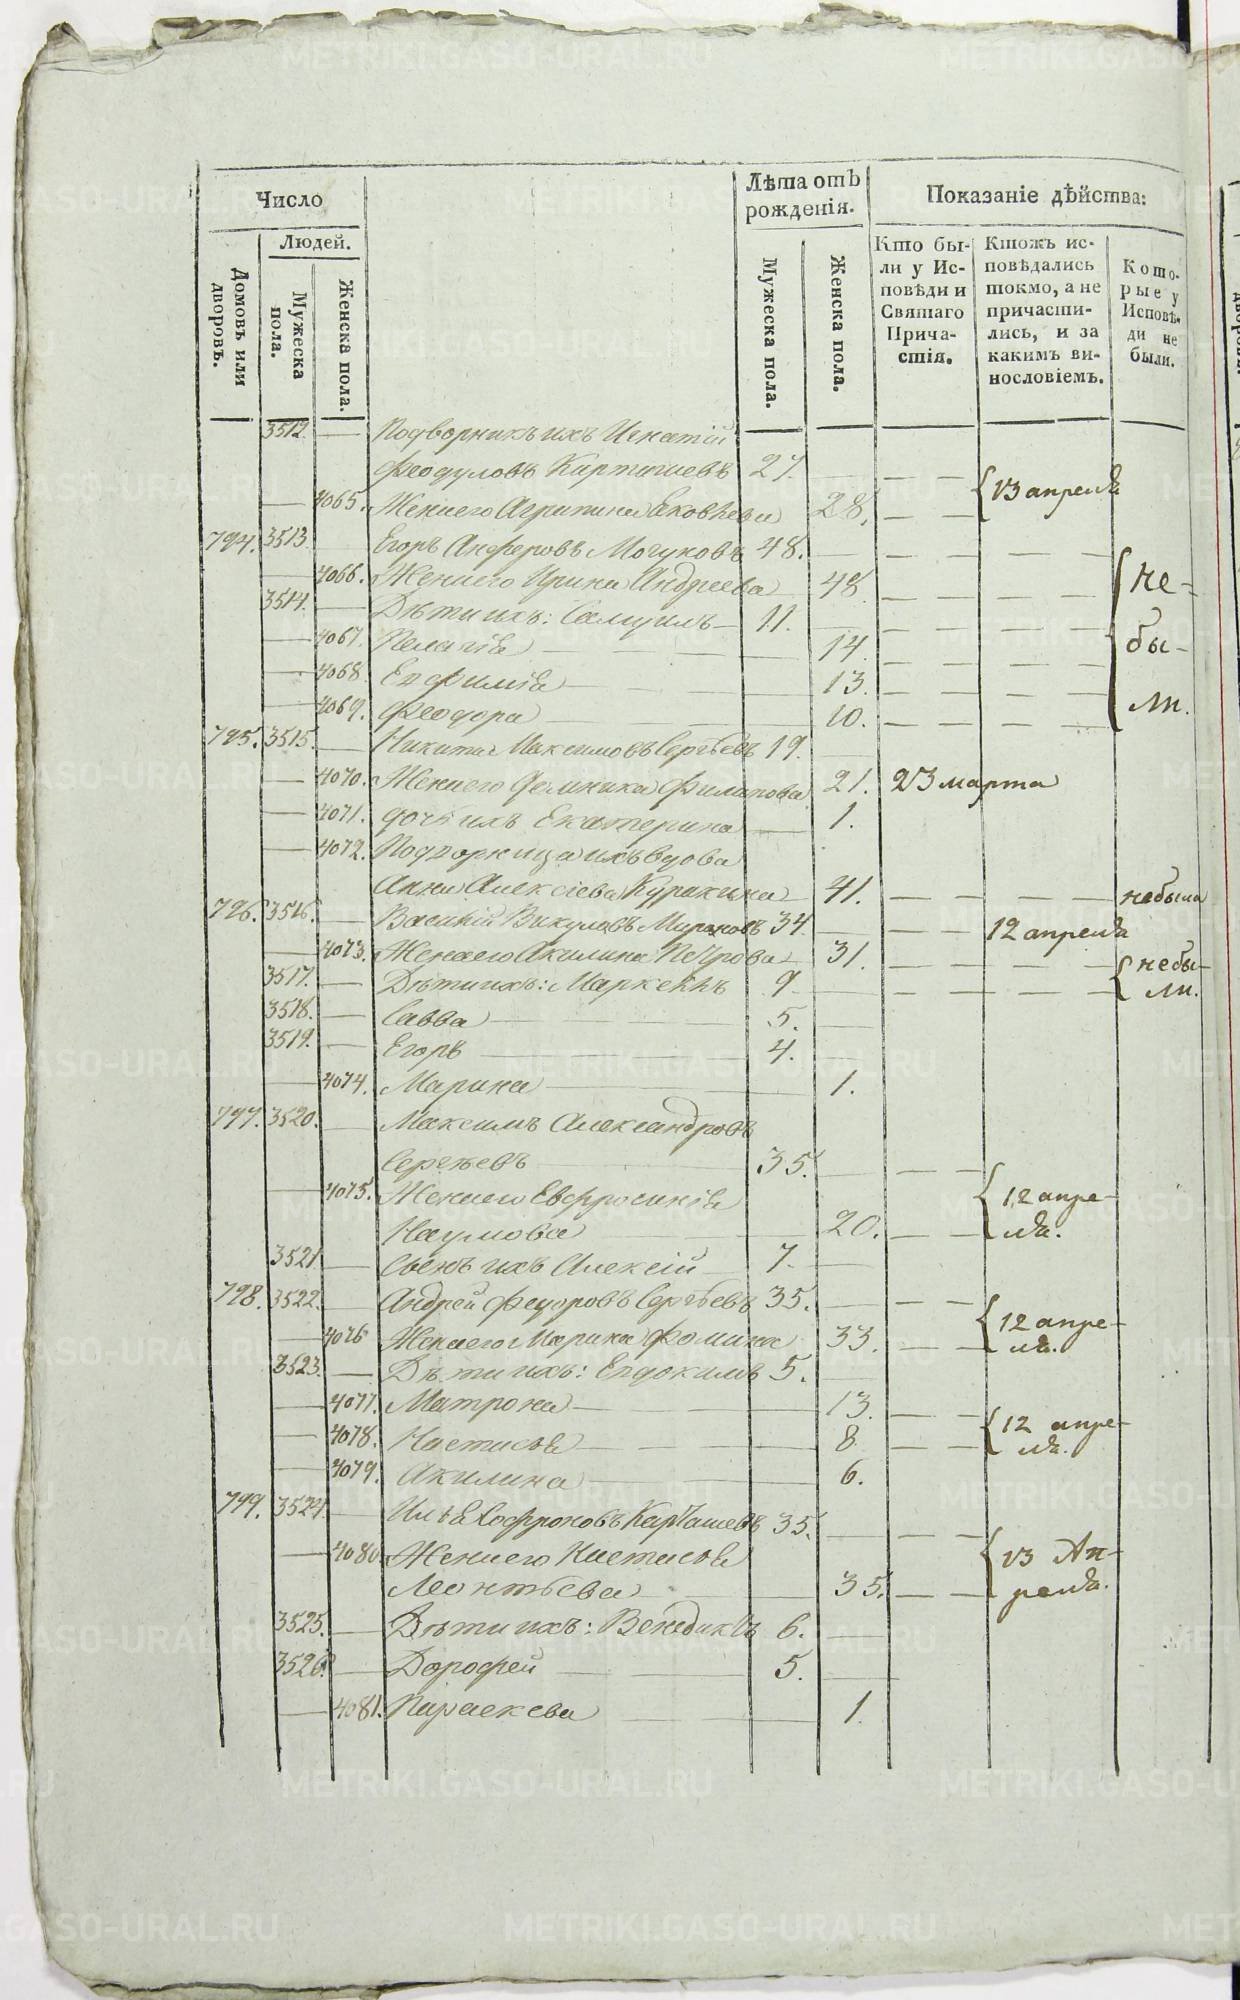 Число
Людей.
Домовъ или дворовъ.
Мужеска пола.
Женска пола.
Лѣта отъ рожденія.
Мужеска пола.
Женска пола.
Показаніе дѣйства:
Кто бы-
ли у Ис-
повѣди и
Святаго
Прича-
стія.
Ктожъ ис-
повѣдались
токмо, а не
причасти-
лись, и за
какимъ ви-
нословіемъ.
Кото-
рые у
Исповѣ-
ди не
были.
3512. — Подворникъ ихъ Игнатій
Феодуловъ Карташевъ 27.
4065. Жена его Агрипина Яковлева 28. 13 апреля
794. 3513. Егоръ Анферовъ 48.
4066. Жена его Ирина Андреева 48 не-
3514. Дѣти ихъ: Самуилъ 11.
4067. Пелагія 14. бы-
4068. Евфимія 13.
4069. Феодора 10. ли.
795. 3515. Никита Максимовъ Сергѣевъ 19.
4070. Жена его Домника Филипова 21. 23 марта
4071. дочь ихъ Екатерина 1.
4072. Подворница ихъ вдова
Анна Алексіева Куракина 41. небыла
796. 3516. Василій Викуловъ Мироновъ 34 12 апреля
4073. Жена его Акилина Петрова 31. небы-
3517. Дѣти ихъ: Маркеллъ 9 ли.
3518. Савва 5.
3519. Егоръ 4.
4074. Марина 1.
797. 3520. Максимъ Александровъ
Сергѣевъ 35.
4075. Жена его Евфросинія 12 апре-
Наумова 20. ля.
3521 Сынъ ихъ Алексій 7.
798. 3522. Андрей Федоровъ Сергѣевъ 35.
12 апре-
4076 Жена его Марина Фомина 33. ля.
3523. Дѣти ихъ: Евдокимъ 5.
4077. Матрона 13.
12 апре-
4078. Настасья 8 ля.
4079. Акилина 6.
799. 3524. Илья Софроновъ Карташевъ 35.
4080. Жена его Настасья 13 Ап-
Леонтьева 35. реля.
3525. Дѣти ихъ: Венедиктъ 6.
3526. Дорофей 5.
4081. Параскева 1.
METRIKI.GASO-URAL.RU